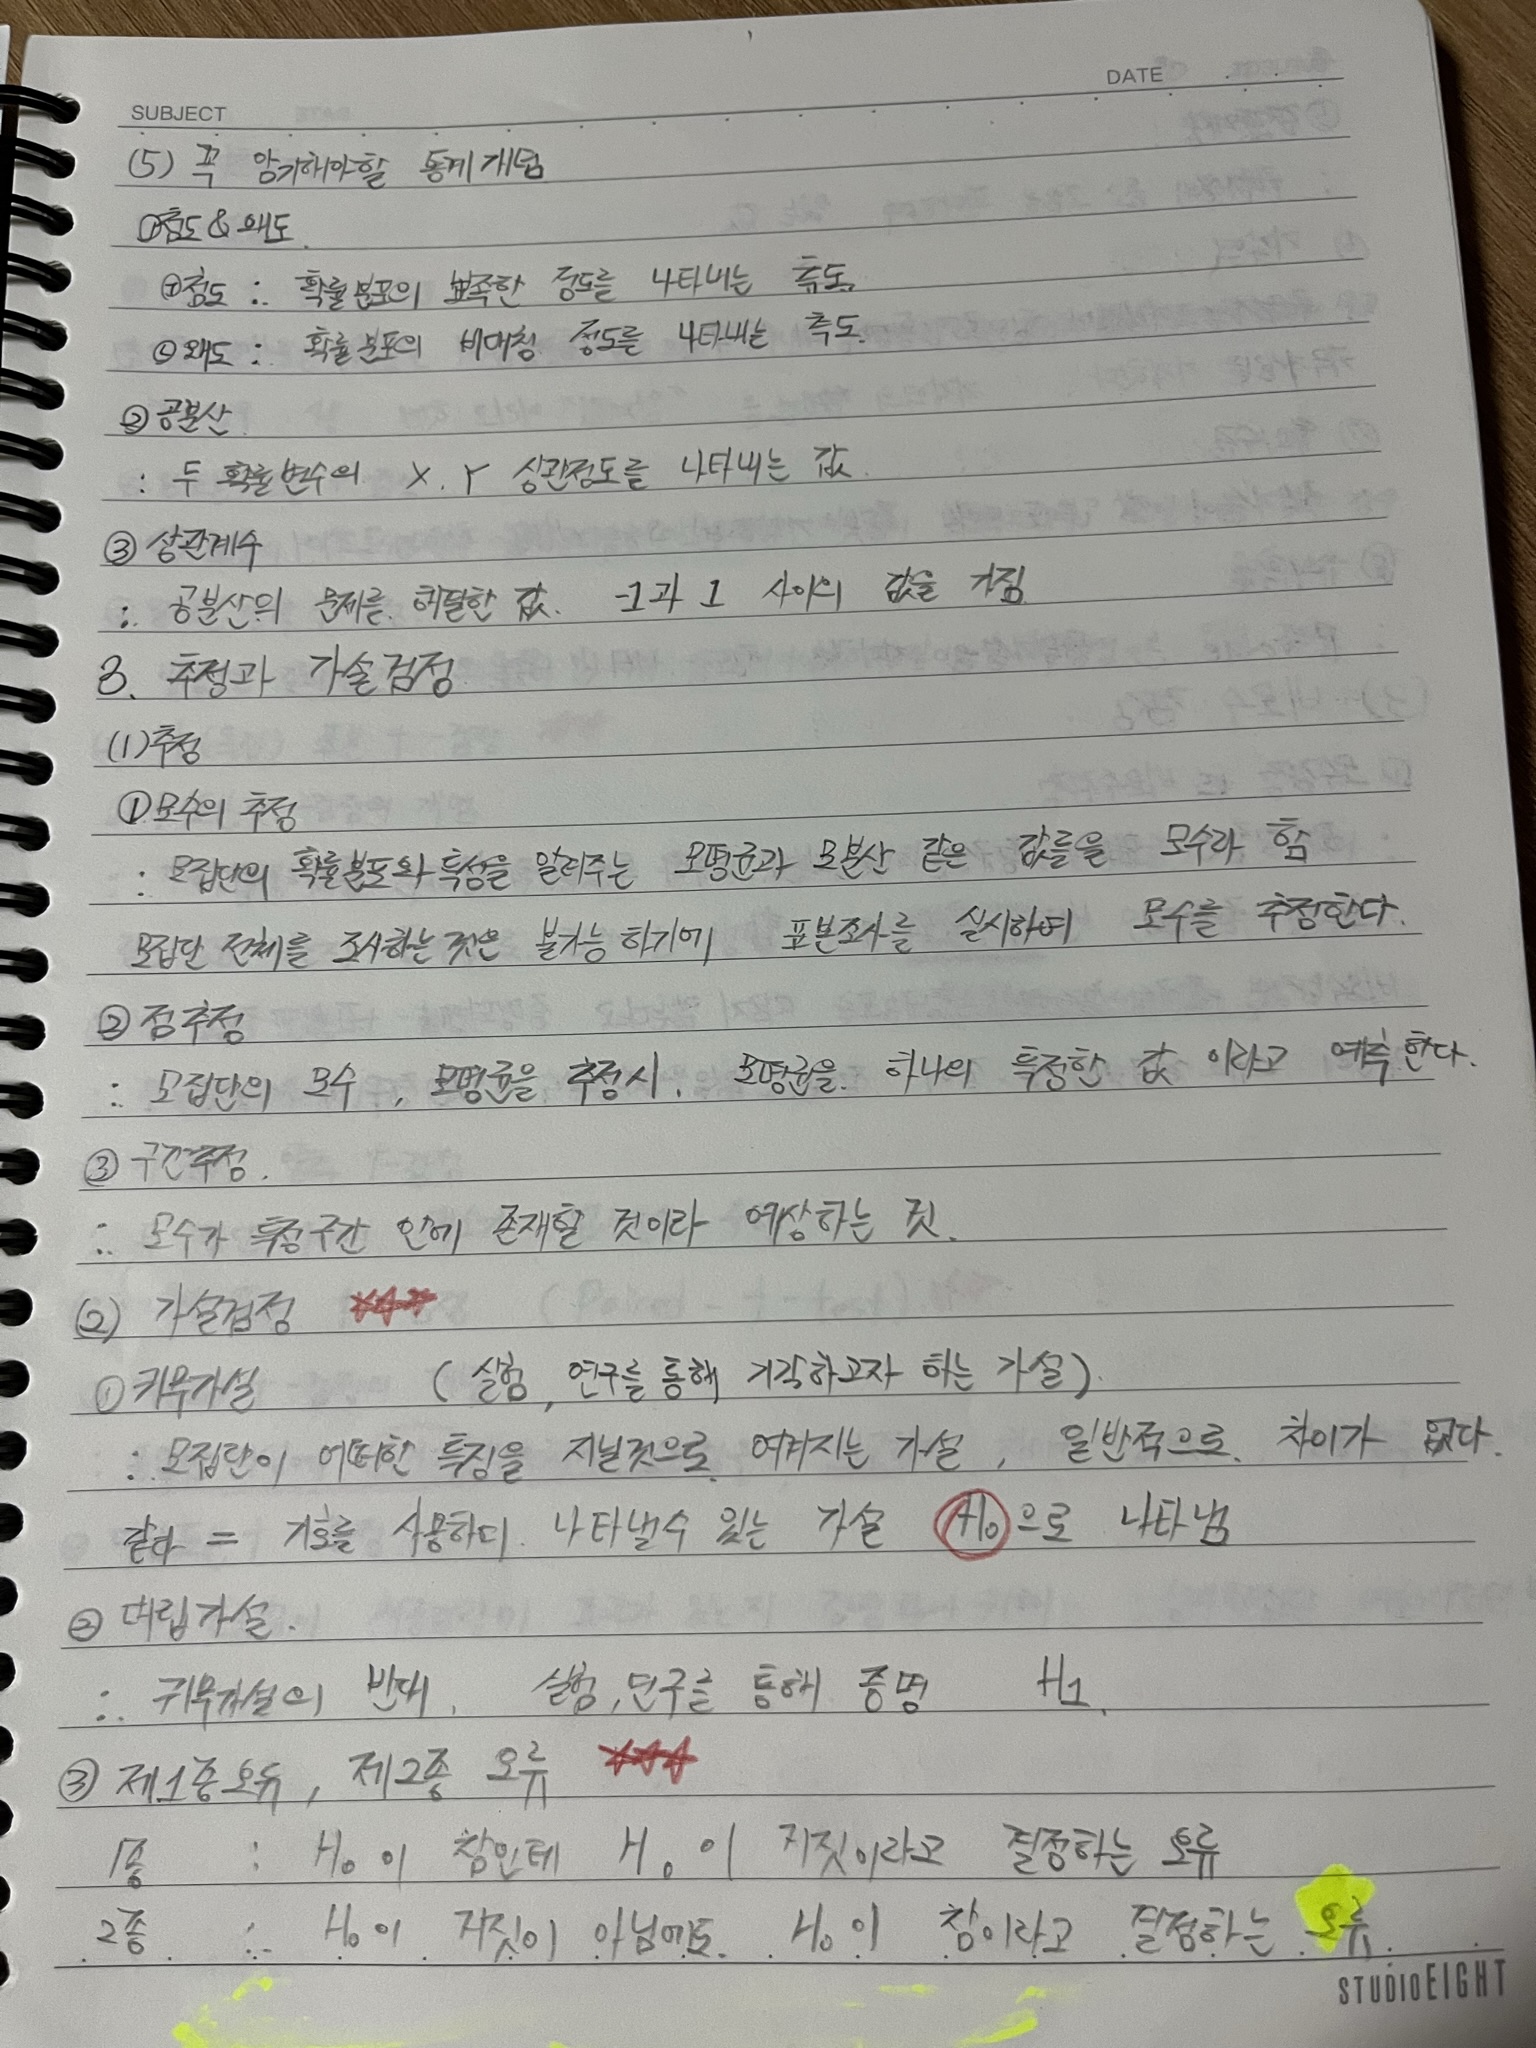 SUBJECT
DATE
(5) 꼭 암기해야할 통계개념
① 첨도 & 왜도
㉠ 첨도 : 확률분포의 뾰족한 정도를 나타내는 측도.
㉡ 왜도 : 확률분포의 비대칭 정도를 나타내는 측도.
② 공분산
: 두 확률변수의 X, Y 상관정도를 나타내는 값.
③ 상관계수
: 공분산의 문제를 해결한 값. -1과 1 사이의 값을 가짐
3. 추정과 가설검정
(1) 추정
① 모수의 추정
: 모집단의 확률분포와 특성을 알려주는 모평균과 모분산 같은 값들을 모수라 함
모집단 전체를 조사하는 것은 불가능하기에 표본조사를 실시하여 모수를 추정한다.
② 점추정
: 모집단의 모수, 모평균을 추정시, 모평균을 하나의 특정한 값이라고 예측한다.
③ 구간추정.
: 모수가 특정구간 안에 존재할 것이라 예상하는 것.
(2) 가설검정
① 귀무가설 (실험, 연구를 통해 기각하고자 하는 가설).
: 모집단이 어떠한 특징을 지닐것으로 여겨지는 가설, 일반적으로 차이가 없다.
같다 = 기호를 사용하여 나타낼수 있는 가설 H₀으로 나타냄
② 대립가설.
: 귀무가설의 반대. 실험, 연구를 통해 증명 H1.
③ 제1종오류, 제2종 오류
1종 : H₀이 참인데 H₀이 거짓이라고 결정하는 오류
2종 : H₀이 거짓이 아님에도 H₀이 참이라고 결정하는 오류.
STUDIOEIGHT